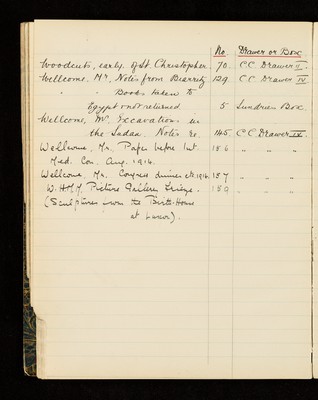 No. Drawer or Box
Woodcuts, early. of St. Christopher. 70. C C Drawer II.
Wellcome, Mr. Notes from Biarritz 129. C.C. Drawer IV
" " Books taken to
Egypt & not returned. 5 Sundries Box.
Wellcome, Mr. Excavation in
the Sudan. Notes &c. 145 C C Drawer IX
Wellcome, Mr. Paper before Int.
Med. Con. Aug. 1914. 156 " " "
Wellcome, Mr. Congress dinner etc. 1914. 157 " " "
W.H.M.M. Picture Gallery Frieze. 159 " " "
(Sculptures from the Birth-House
at Luxor).